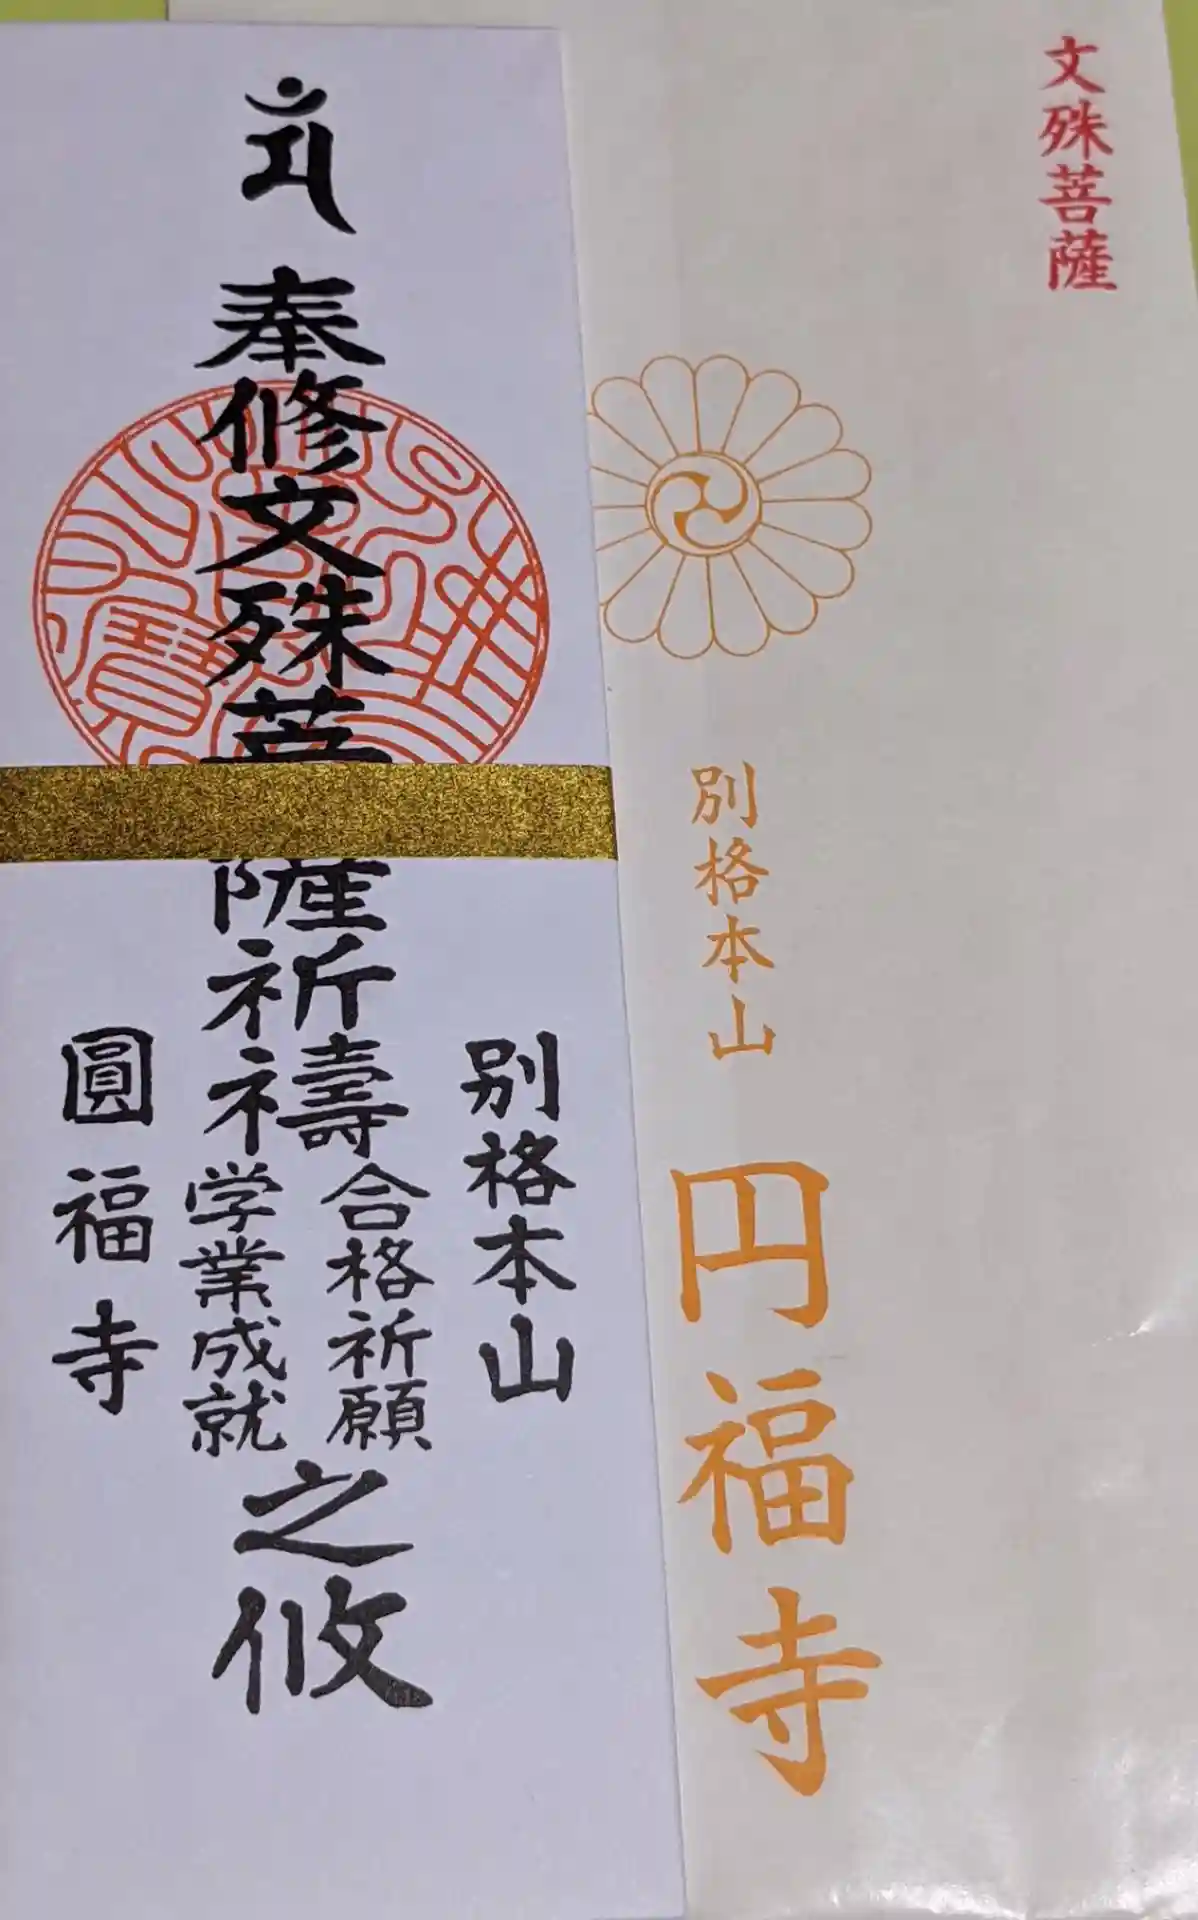 文殊菩薩
別格本山
円福寺
別格本山
奉修文殊菩薩祈祷
合格祈願
学業成就
之攸
圓福寺